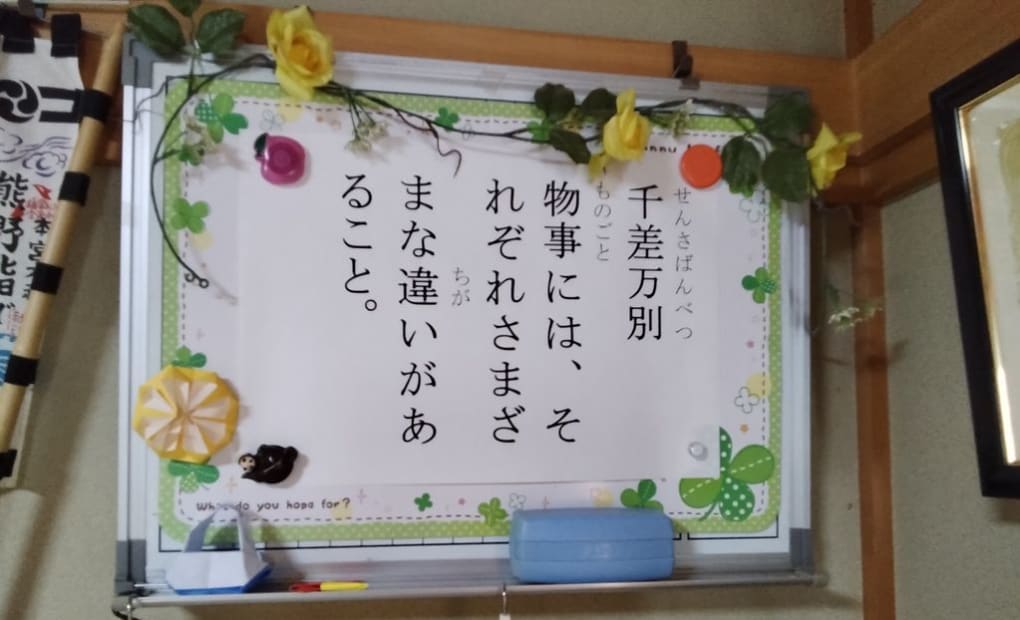 千差万別
せんさばんべつ
物事には、そ
ものごと
れぞれさまざ
まな違いがあ
ちが
ること。
do you hope for?
本宮
熊野詣